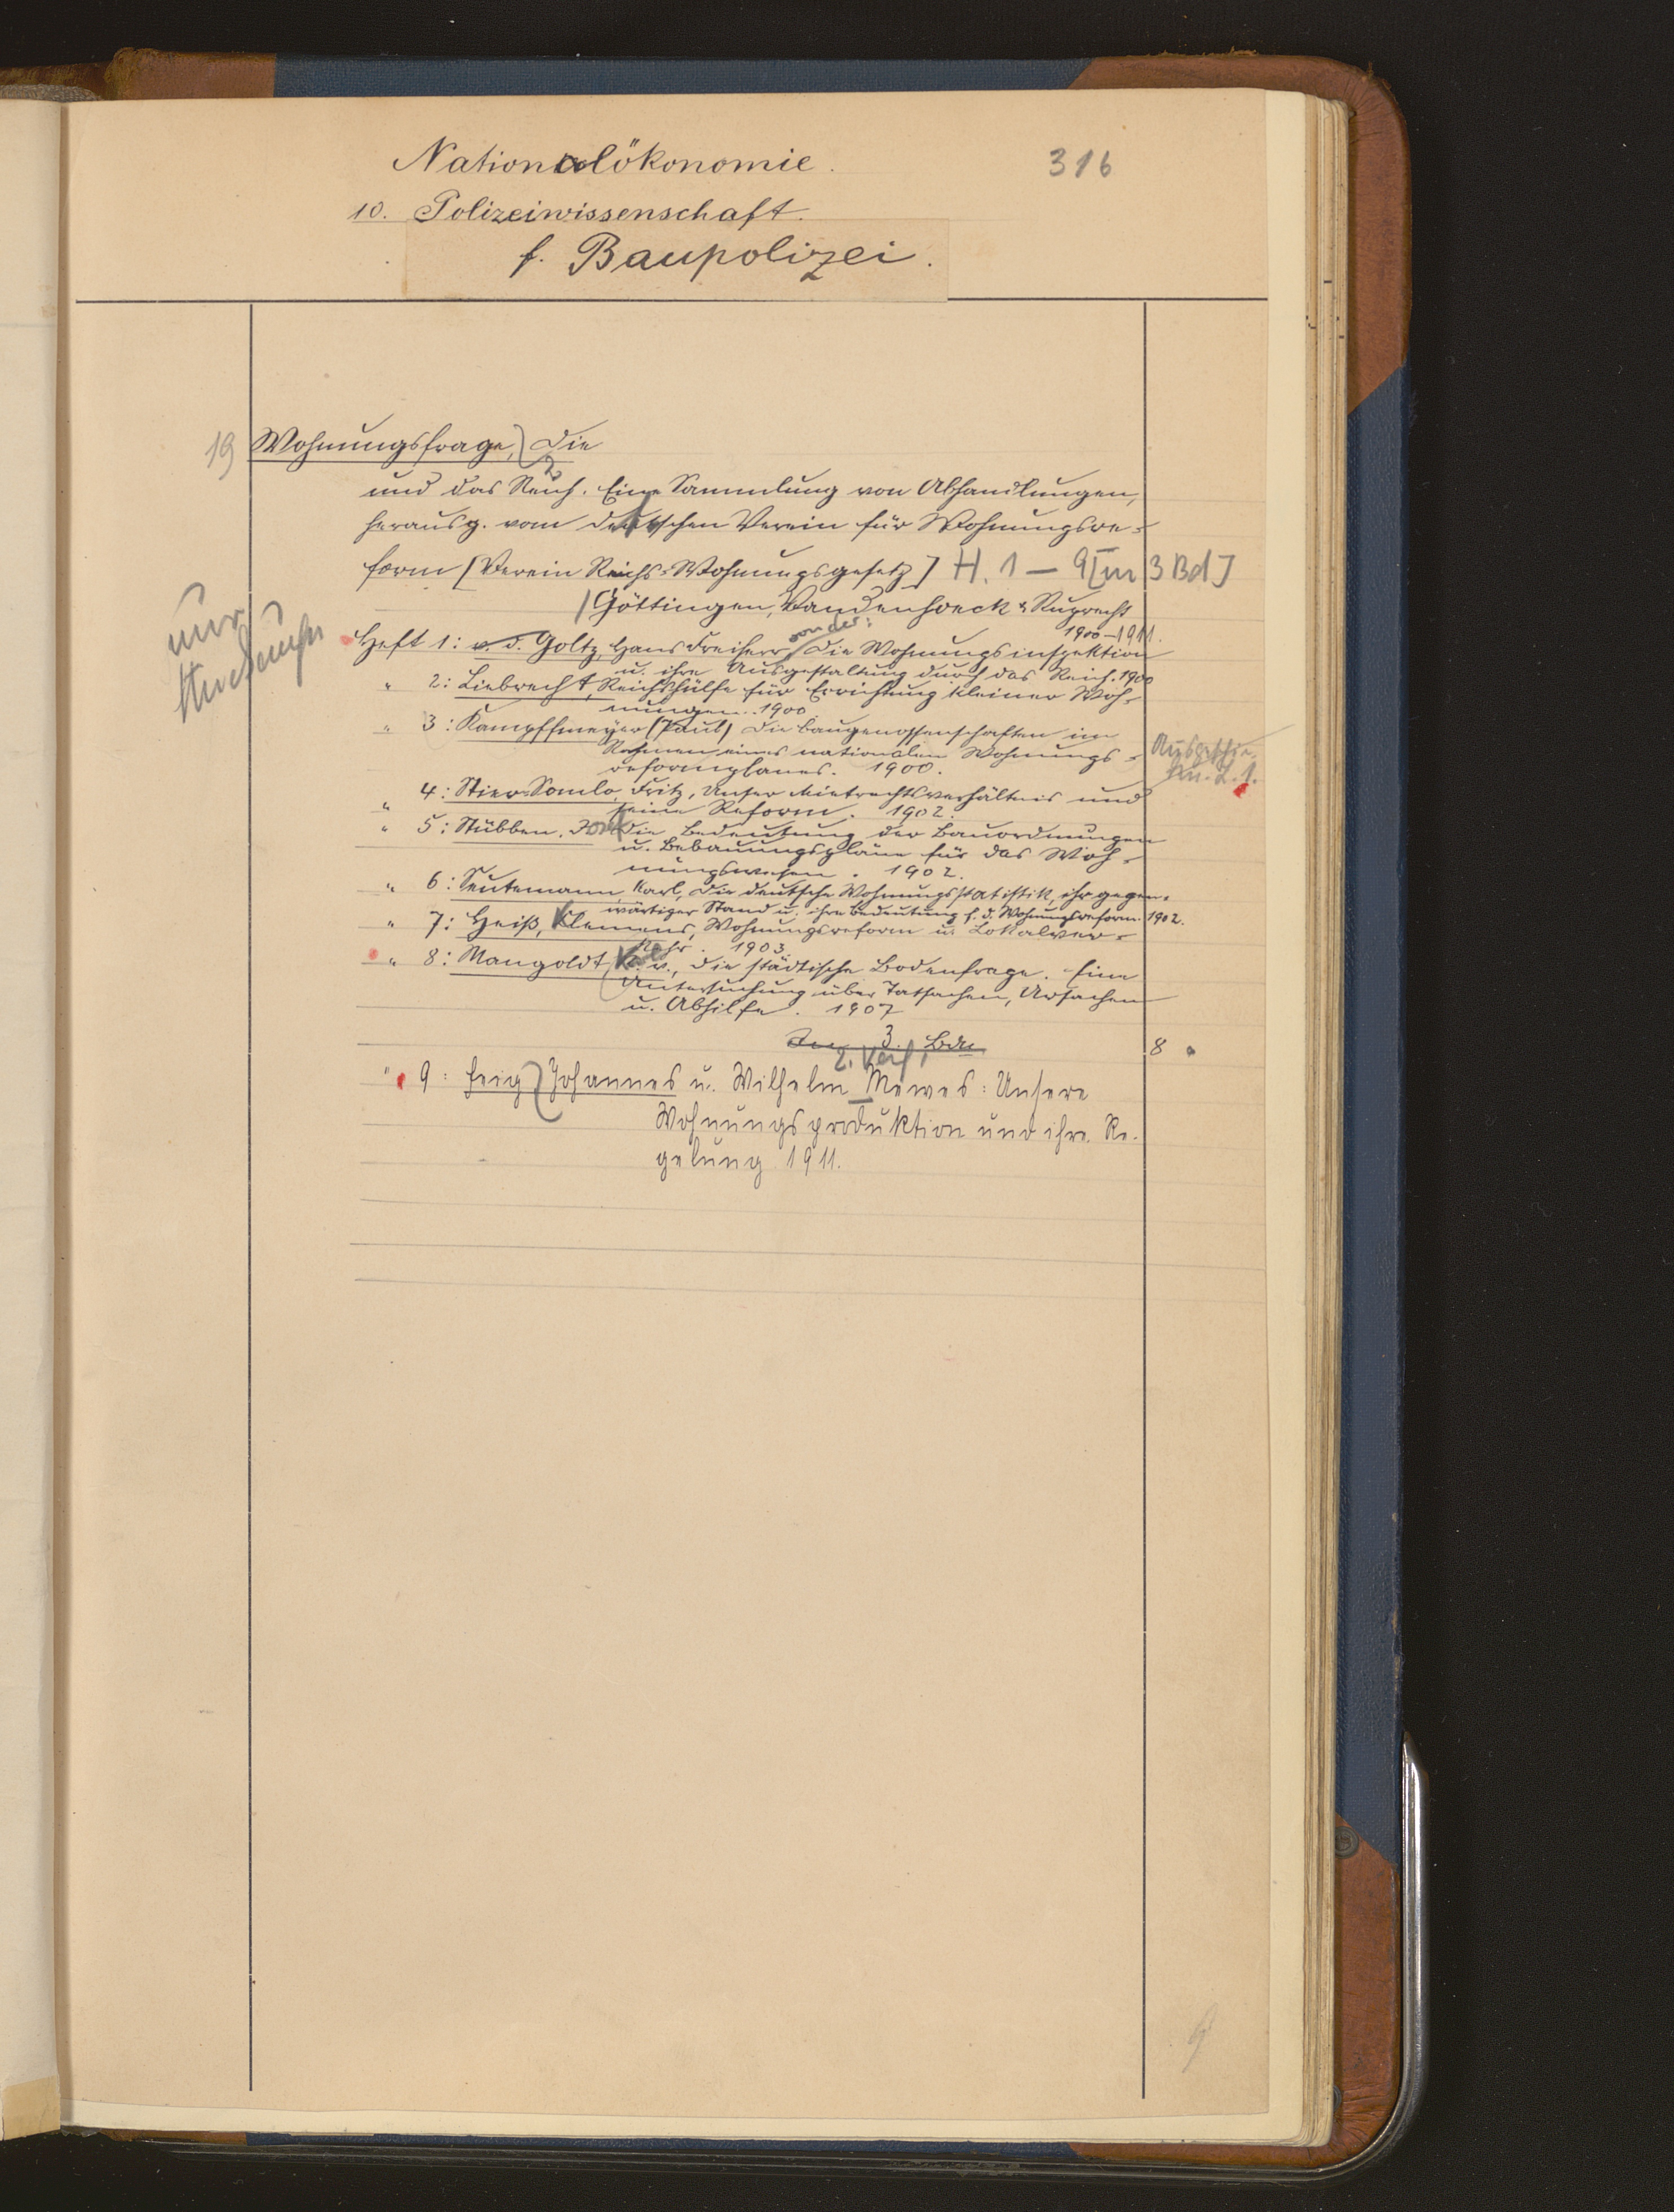 Nationalökonomie.
316
10. Polizeiwissenschaft.
f. Baupolizei.
19 Wohnungsfrage, Die
und das Reich. Eine Sammlung von Abhandlungen,
herausg. vom deutschen Verein für Wohnungsre-
form (Verein Reichs-Wohnungsgesetz) H. 1 — 9 [in 3 Bd]
Göttingen, Vandenhoeck & Ruprecht
1900-1911.
nur
Heft 1: v. d. Goltz, Hans Freiherr von der: Die Wohnungsinspektion
u. ihre Ausgestaltung durch das Reich. 1900
" 2: Liebrecht, Reichshülfe für Errichtung kleiner Woh-
nungen. 1900
" 3: Kampffmeyer (Paul) Die Baugenossenschaften im
Rahmen eines nationalen Wohnungs-
reformplanes. 1900.
" 4: Stier-Somlo, Fritz, Unser Mietrechtsverhältnis und
seine Reform. 1902.
" 5: Stübben, Josef Die Bedeutung der Bauordnungen
u. Bebauungspläne für das Woh-
nungswesen. 1902.
" 6: Seutemann Karl, Die deutsche Wohnungsstatistik, ihr gegen-
wärtiger Stand u. ihre Bedeutung f. d. Wohnungsreform. 1902.
" 7: Heiß, Klemens, Wohnungsreform u. Lokalver-
kehr. 1903.
" 8: Mangoldt, K. v., Die städtische Bodenfrage. Eine
Untersuchung über Tatsachen, Ursachen
u. Abhilfe. 1907
In 3. Bdn
8
2. Verf.
" 9: Feig Johannes u. Wilhelm Mewes: Unsere
Wohnungsproduktion und ihre Re-
gelung 1911.